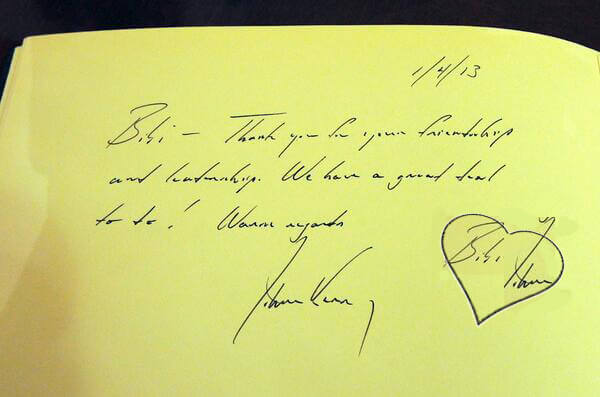 1/4/13
Bibi – Thank you for your friendship
and leadership. We have a great deal
to do! Warm regards
Bibi